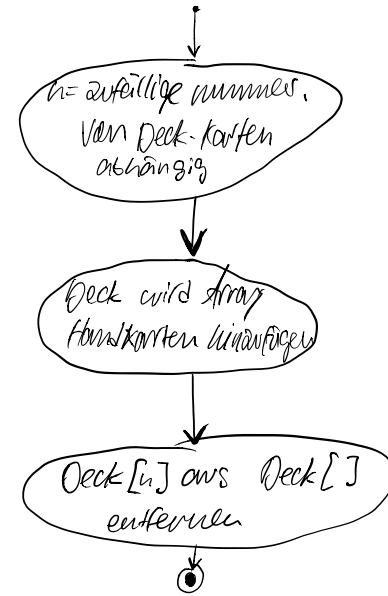 n= zufällige nummer.
von Deck-Karten
abhängig
Deck wird Array
Handkarten hinzufügen
Deck[n] aus Deck[]
entfernen